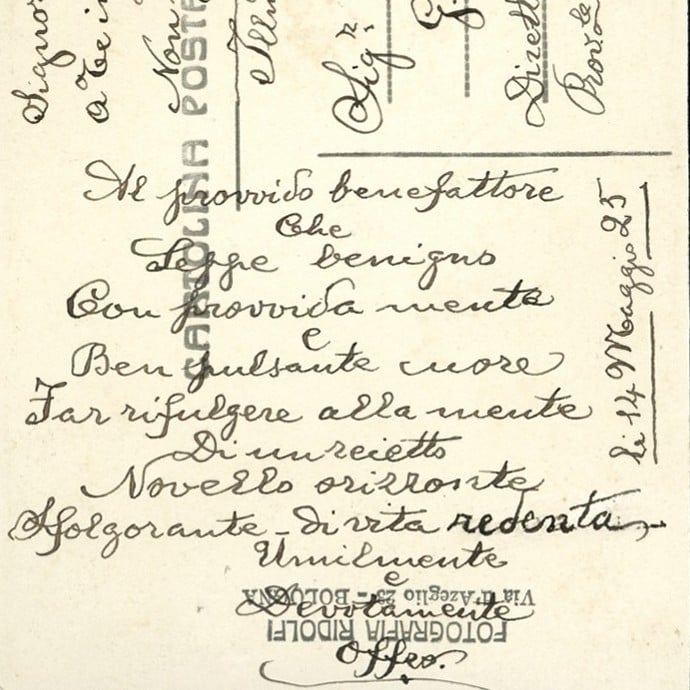 Signor
a Te in
Non
CARTOLINA POSTA
Ill
Sigr.
G.
Dirett
Provle
li 14 Maggio 25
Al provvido benefattore
Che
Seppe benigno
Con provvida mente
e
Ben pulsante cuore
Far rifulgere alla mente
Di un reietto
Novello orizzonte
Sfolgorante - di vita redenta,-
Umilmente
e
Devotamente
Offro.
FOTOGRAFIA RIDOLFI
Via d'Azeglio 25 - BOLOGNA